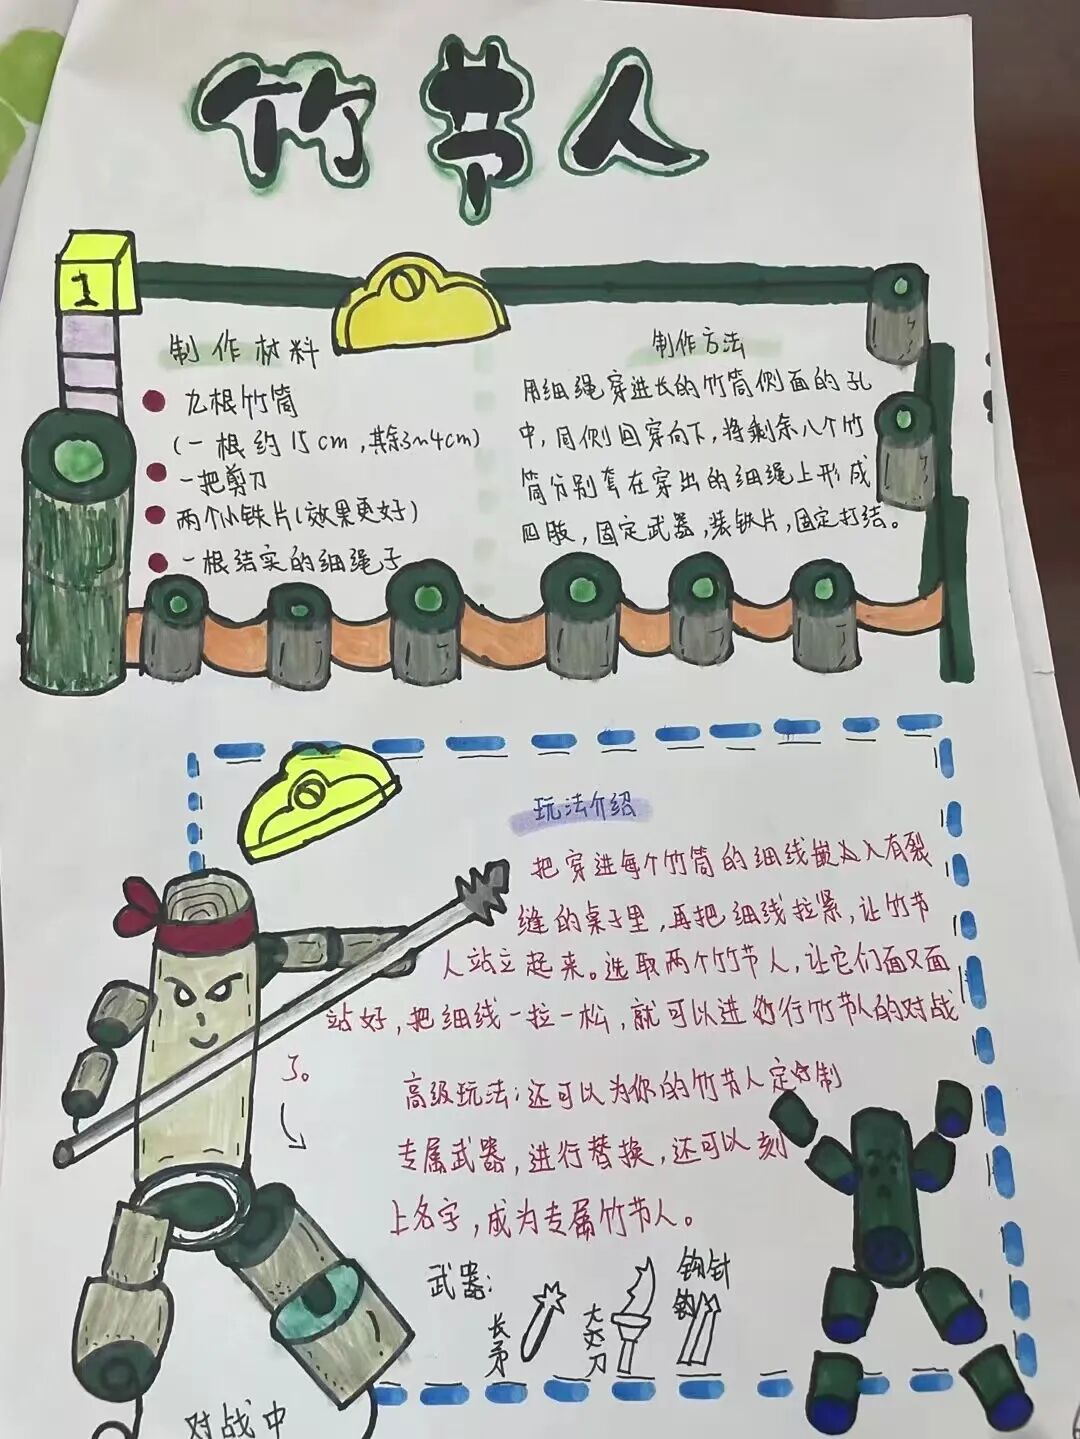 竹节人
1
制作材料
九根竹筒
(一根约15cm,其余3~4cm)
一把剪刀
两个小铁片(效果更好)
一根结实的细绳子
制作方法
用细绳穿进长的竹筒侧面的孔
中,同侧回穿向下,将剩余八个竹
筒分别套在穿出的细绳上形成
四肢,固定武器,装铁片,固定打结。
玩法介绍
把穿进每个竹筒的细线嵌入有裂
缝的桌子里,再把细线拉紧,让竹节
人站立起来。选取两个竹节人,让它们面又面
站好,把细线一拉一松,就可以进行竹节人的对战
了。
高级玩法:还可以为你的竹节人定制
专属武器,进行替换,还可以刻
上名字,成为专属竹节人。
武器:
长矛
大砍刀
钩针
对战中